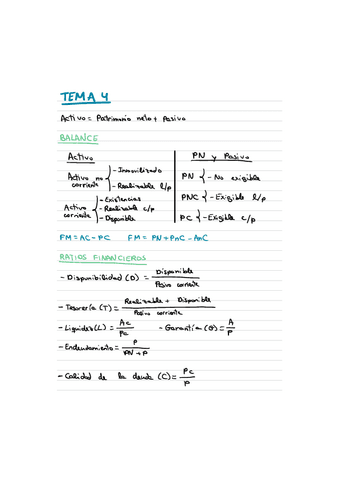 TEMA 4
Activo = Patrimonio neto + Pasivo
BALANCE
Activo
Activo no corriente { - Inmovilizado
- Realizable l/p
Activo corriente { - Existencias
- Realizable c/p
- Disponible
PN y Pasivo
PN { - No exigible
PNC { - Exigible l/p
PC { - Exigible c/p
FM = AC - PC FM = PN + PnC - AnC
RATIOS FINANCIEROS
- Disponibilidad (D) = Disponible / Pasivo corriente
- Tesorería (T) = Realizable + Disponible / Pasivo corriente
- Liquidez (L) = AC / PC - Garantía (G) = A / P
- Endeudamiento = P / PN + P
- Calidad de la deuda (C) = PC / P